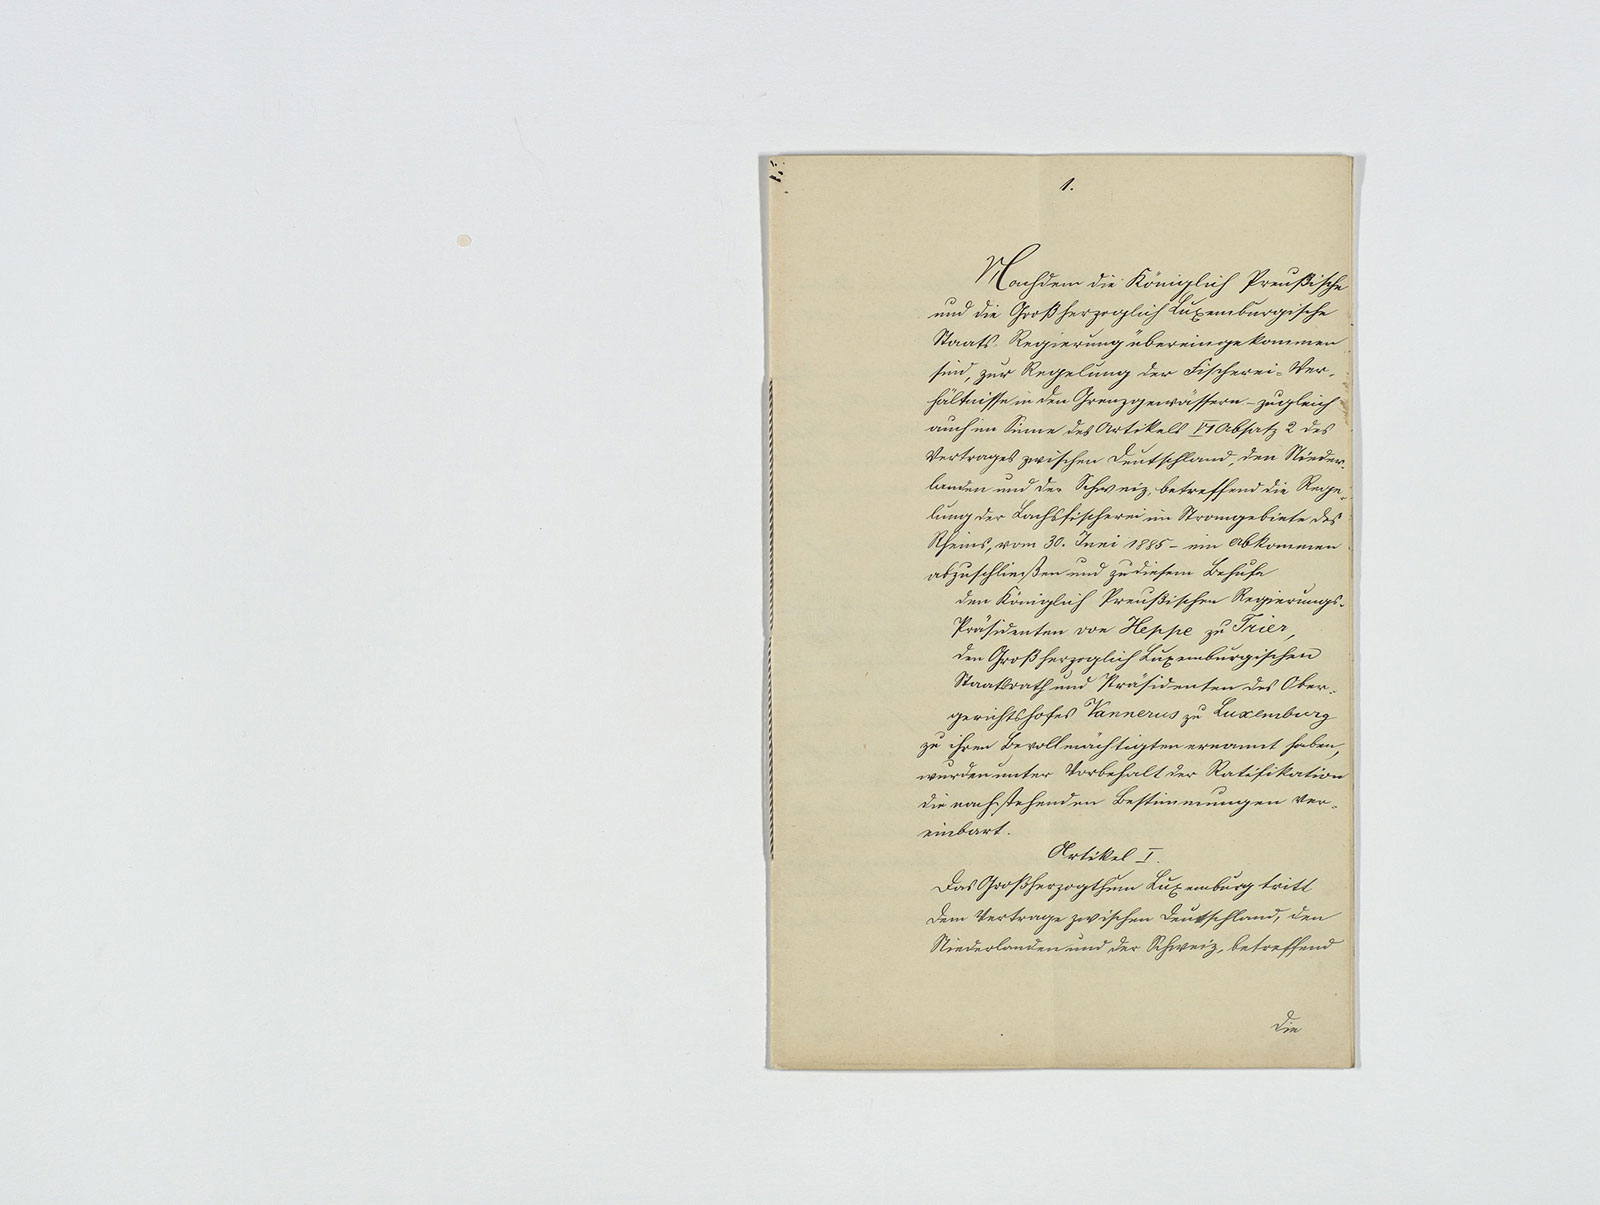 1.
Nachdem die Königlich Preußische
und die Großherzoglich Luxemburgische
Staats-Regierung übereingekommen
sind, zur Regelung der Fischerei-Ver-
hältnisse in den Grenzgewässern – zugleich
auch im Sinne des Artikels VI Absatz 2 des
Vertrages zwischen Deutschland, den Nieder-
landen und der Schweiz, betreffend die Rege-
lung der Lachsfischerei im Stromgebiete des
Rheins, vom 30. Juni 1885 – ein Abkommen
abzuschließen und zu diesem Behufe
den Königlich Preußischen Regierungs-
Präsidenten von Heppe zu Trier,
den Großherzoglich Luxemburgischen
Staatsrath und Präsidenten des Ober-
gerichtshofes Vannerus zu Luxemburg
zu ihren Bevollmächtigten ernannt haben,
wurden unter Vorbehalt der Ratifikation
die nachstehenden Bestimmungen ver-
einbart.
Artikel I.
Das Großherzogthum Luxemburg tritt
dem Vertrage zwischen Deutschland, den
Niederlanden und der Schweiz, betreffend
die